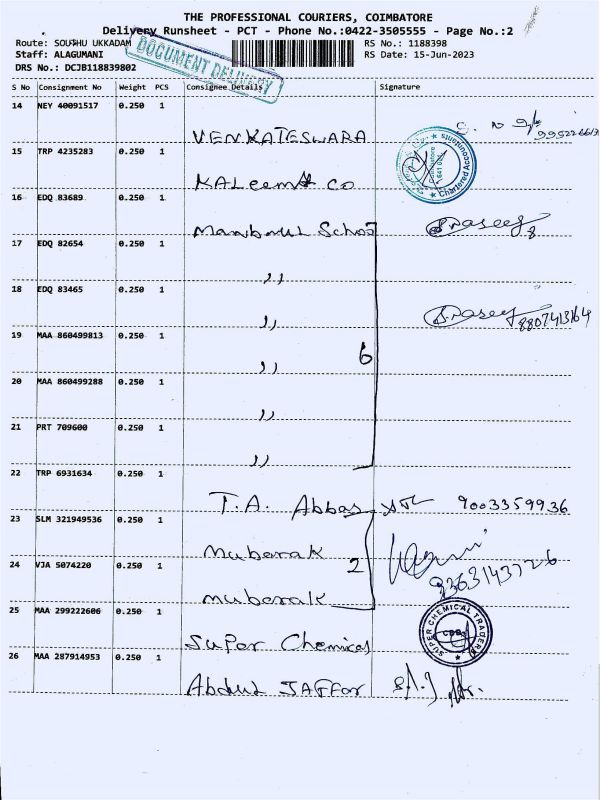 THE PROFESSIONAL COURIERS, COIMBATORE
Delivery Runsheet - PCT - Phone No.:0422-3505555 - Page No.:2
Route: SOUTHU UKKADAM
RS No.: 1188398
Staff: ALAGUMANI
RS Date: 15-Jun-2023
DRS No.: DCJB118839802
DOCUMENT DELIVERY
S No Consignment No Weight PCS Consignee Details Signature
14 NEY 40091517 0.250 1
VENKATESWARA
15 TRP 4235283 0.250 1
KALeem & co
Chartered Accountants
16 EDQ 83689 0.250 1
Manbaul School
17 EDQ 82654 0.250 1
,,
18 EDQ 83465 0.250 1
,, 8807413164
19 MAA 860499813 0.250 1
,, 6
20 MAA 860499288 0.250 1
,,
21 PRT 709600 0.250 1
,,
22 TRP 6931634 0.250 1
T.A. Abbas 9003359936
23 SLM 321949536 0.250 1
Mubarak
24 VJA 5074220 0.250 1
2 9363143726
mubarak
25 MAA 299222606 0.250 1
Super Chemicals
SUPER CHEMICAL TRADERS
CBE
26 MAA 287914953 0.250 1
Abdul JAFFar